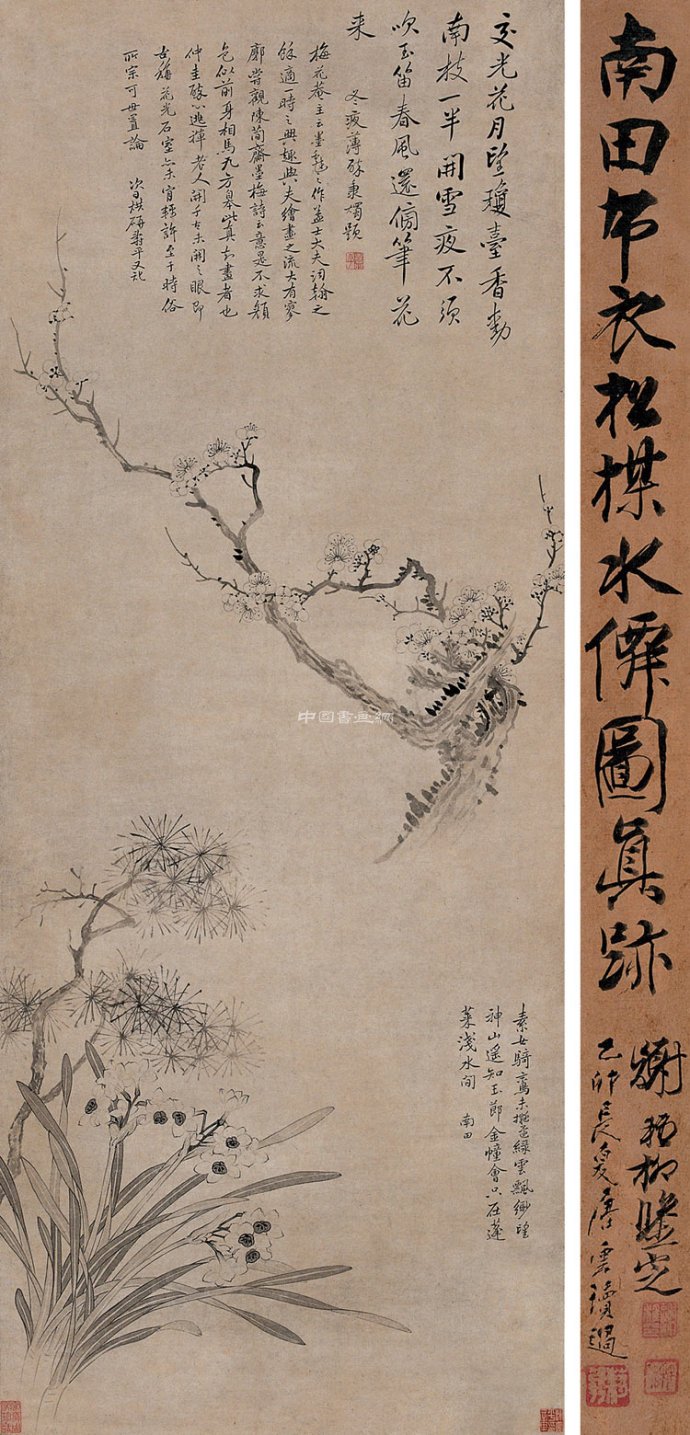 南田布衣松楳水僊圖真跡
謝稚柳鑒定
己卯長夏唐雲獲觀
交光花月望瓊臺香動
南枝一半開雪夜不須
吹玉笛春風還傍筆花
来
冬夜薄醉秉燭題
梅花菴主云墨之作盖士大夫詞翰之
餘適一時之興趣與夫繪畫之流大有寥
廓嘗觀陳簡齋墨梅詩云意足不求顏
色似前身相馬九方皋此真知畫者也
仲圭醉心逃禪老人開千古未開之眼即
古稱花光石室亦未肯輕許至于時俗
所宗可毋置論
次日棋研壽平又記
素女騎鸞未擬還緑雲飄緲望
神山遥知玉節金幢會只在蓬
萊淺水間
南田
中国書画網